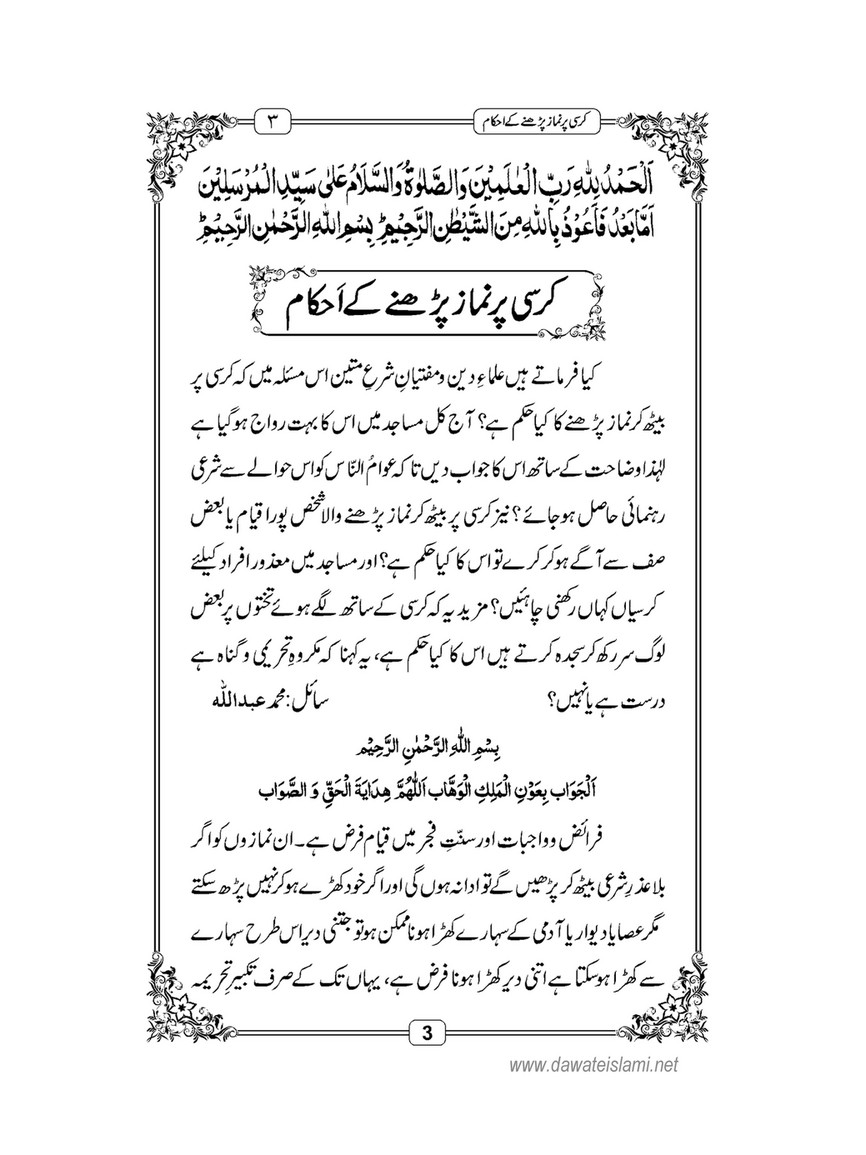 کرسی پر نماز پڑھنے کے احکام
۳
اَلْحَمْدُ لِلّٰہِ رَبِّ الْعٰلَمِیْنَ وَالصَّلٰوۃُ وَالسَّلَامُ عَلٰی سَیِّدِ الْمُرْسَلِیْنَ
اَمَّا بَعْدُ فَاَعُوْذُ بِاللّٰہِ مِنَ الشَّیْطٰنِ الرَّجِیْمِ ؕ بِسْمِ اللّٰہِ الرَّحْمٰنِ الرَّحِیْمِ ؕ
کرسی پر نماز پڑھنے کے اَحکام
کیا فرماتے ہیں علماءِ دین و مفتیانِ شرعِ متین اس مسئلہ میں کہ کرسی پر
بیٹھ کر نماز پڑھنے کا کیا حکم ہے؟ آج کل مساجد میں اس کا بہت رواج ہو گیا ہے
لہٰذا وضاحت کے ساتھ اس کا جواب دیں تا کہ عوامُ النّاس کو اس حوالے سے شرعی
رہنمائی حاصل ہو جائے؟ نیز کرسی پر بیٹھ کر نماز پڑھنے والا شخص پورا قیام یا بعض
صف سے آگے ہو کر کرے تو اس کا کیا حکم ہے؟ اور مساجد میں معذور افراد کیلئے
کرسیاں کہاں رکھنی چاہئیں؟ مزید یہ کہ کرسی کے ساتھ لگے ہوئے تختوں پر بعض
لوگ سر رکھ کر سجدہ کرتے ہیں اس کا کیا حکم ہے، یہ کہنا کہ مکروہِ تحریمی و گناہ ہے
درست ہے یا نہیں؟ سائل: محمد عبداللہ
بِسْمِ اللّٰہِ الرَّحْمٰنِ الرَّحِیْم
اَلْجَوَاب بِعَوْنِ الْمَلِکِ الْوَھَّاب اَللّٰھُمَّ ھِدَایَۃَ الْحَقِّ وَ الصَّوَاب
فرائض و واجبات اور سنّتِ فجر میں قیام فرض ہے۔ ان نمازوں کو اگر
بلا عذرِ شرعی بیٹھ کر پڑھیں گے تو ادا نہ ہوں گی اور اگر خود کھڑے ہو کر نہیں پڑھ سکتے
مگر عصا یا دیوار یا آدمی کے سہارے کھڑا ہونا ممکن ہو تو جتنی دیر اس طرح سہارے
سے کھڑا ہو سکتا ہے اتنی دیر کھڑا ہونا فرض ہے، یہاں تک کے صرف تکبیرِ تحریمہ
3
www.dawateislami.net